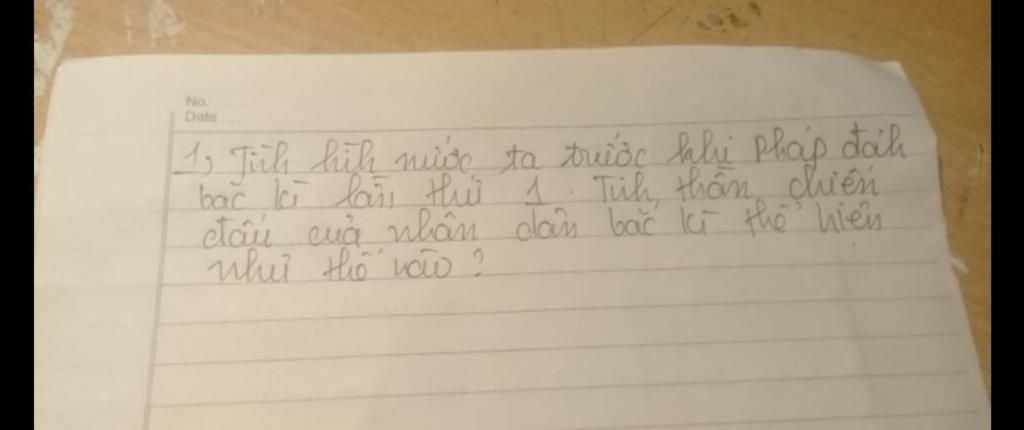 No.
Date
1, Tình hình nước ta trước khi Pháp đánh
bắc kì lần thứ 1. Tinh thần chiến
đấu của nhân dân bắc kì thể hiện
như thế nào?